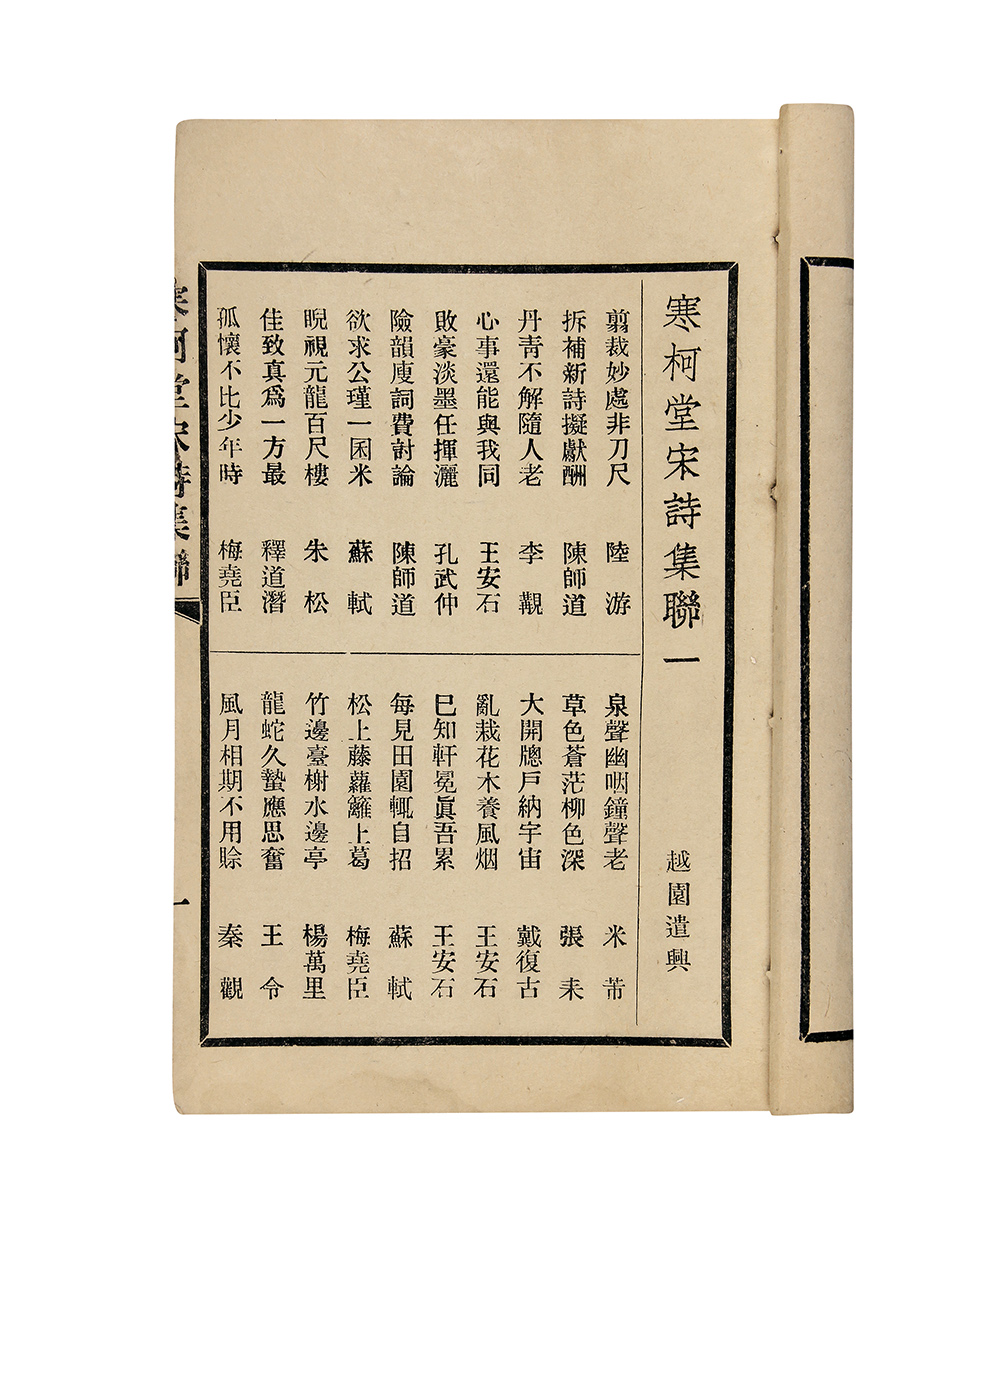 寒柯堂宋詩集聯一
越園遣興
翦裁妙處非刀尺 陸游
拆補新詩擬獻酬 陳師道
丹青不解隨人老 李覯
心事還能與我同 王安石
敗豪淡墨任揮灑 孔武仲
險韻廋詞費討論 陳師道
欲求公瑾一囷米 蘇軾
睨視元龍百尺樓 朱松
佳致真為一方最 釋道潛
孤懷不比少年時 梅堯臣
泉聲幽咽鐘聲老 米芾
草色蒼茫柳色深 張耒
大開牕戶納宇宙 戴復古
亂栽花木養風烟 王安石
巳知軒冕眞吾累 王安石
每見田園輒自招 蘇軾
松上藤蘿籬上葛 梅堯臣
竹邊臺榭水邊亭 楊萬里
龍蛇久蟄應思奮 王令
風月相期不用賒 秦觀
寒柯堂宋詩集聯
一